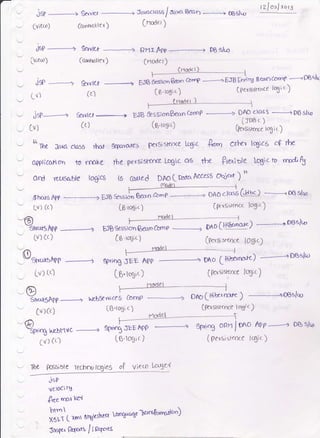 12/02/2013
JSP → Servlet → Javaclass / Java Bean → DB S/w
(view) (controller) (model)
JSP → Servlet → RMI App → DB S/w
(view) (controller) (model)
(model)
JSP → Servlet → EJB Session Bean Comp → EJB Entity Bean Comp → DB S/w
(v) (c) (B-logic) (persistence logic)
(model)
JSP → Servlet → EJB Session Bean Comp → DAO class → DB S/w
(v) (c) (B-logic) (JDBC)
(persistence logic)
"The Java class that separates persistence logic from other logics of the
application to make the persistence logic as the flexible logic to modify
and reusable logics is called DAO (Data Access Object)"
model
Struts App → EJB Session Bean Comp → DAO class (JDBC) → DB S/w
(v) (c) (B-logic) (persistence logic)
model
Struts App → EJB Session Bean Comp → DAO (Hibernate) → DB S/w
(v) (c) (B-logic) (persistence logic)
Model
Struts App → Spring JEE App → DAO (Hibernate) → DB S/w
(v) (c) (B-logic) (persistence logic)
Model
Struts App → Webservices Comp → DAO (Hibernate) → DB S/w
(v) (c) (B-logic) (persistence logic)
Model
Spring WebMVC → Spring JEE App → Spring ORM / DAO App → DB S/w
(v) (c) (B-logic) (persistence logic)
The possible technologies of view Layer
JSP
velocity
free marker
html
XSLT (xml stylesheet Language Transformation)
Jasper Reports / iReports